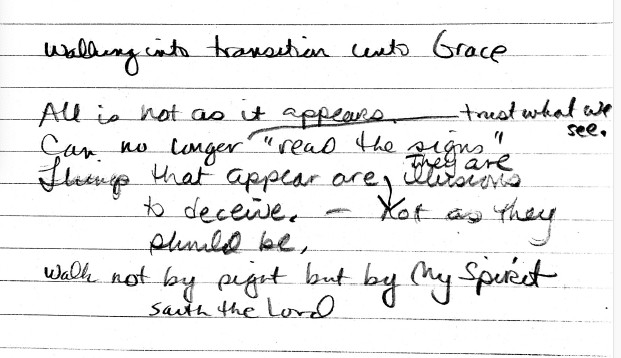 Walking into transition unto Grace
All is not as it appears. trust what we see.
Can no longer "read the signs"
Things that appear are, they are illusions
to deceive. - Not as they
should be,
Walk not by sight but by My Spirit
saith the Lord